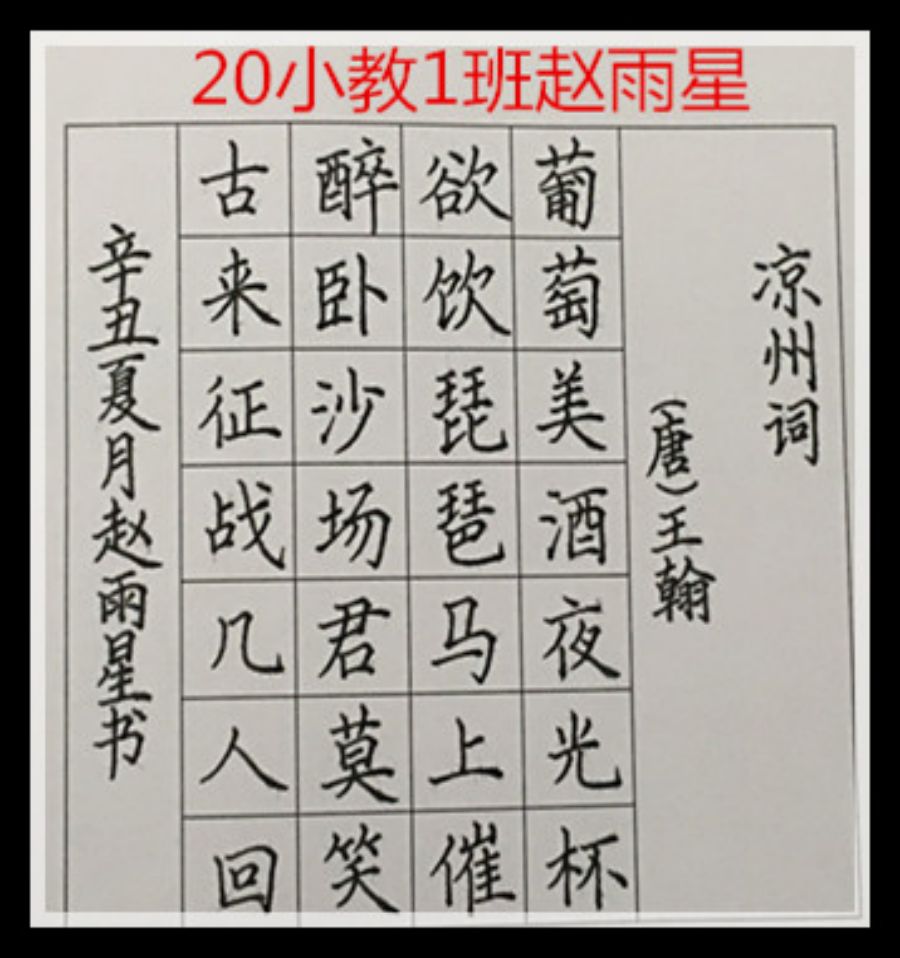 20小教1班赵雨星
凉州词
（唐）王翰
葡萄美酒夜光杯
欲饮琵琶马上催
醉卧沙场君莫笑
古来征战几人回
辛丑夏月赵雨星书